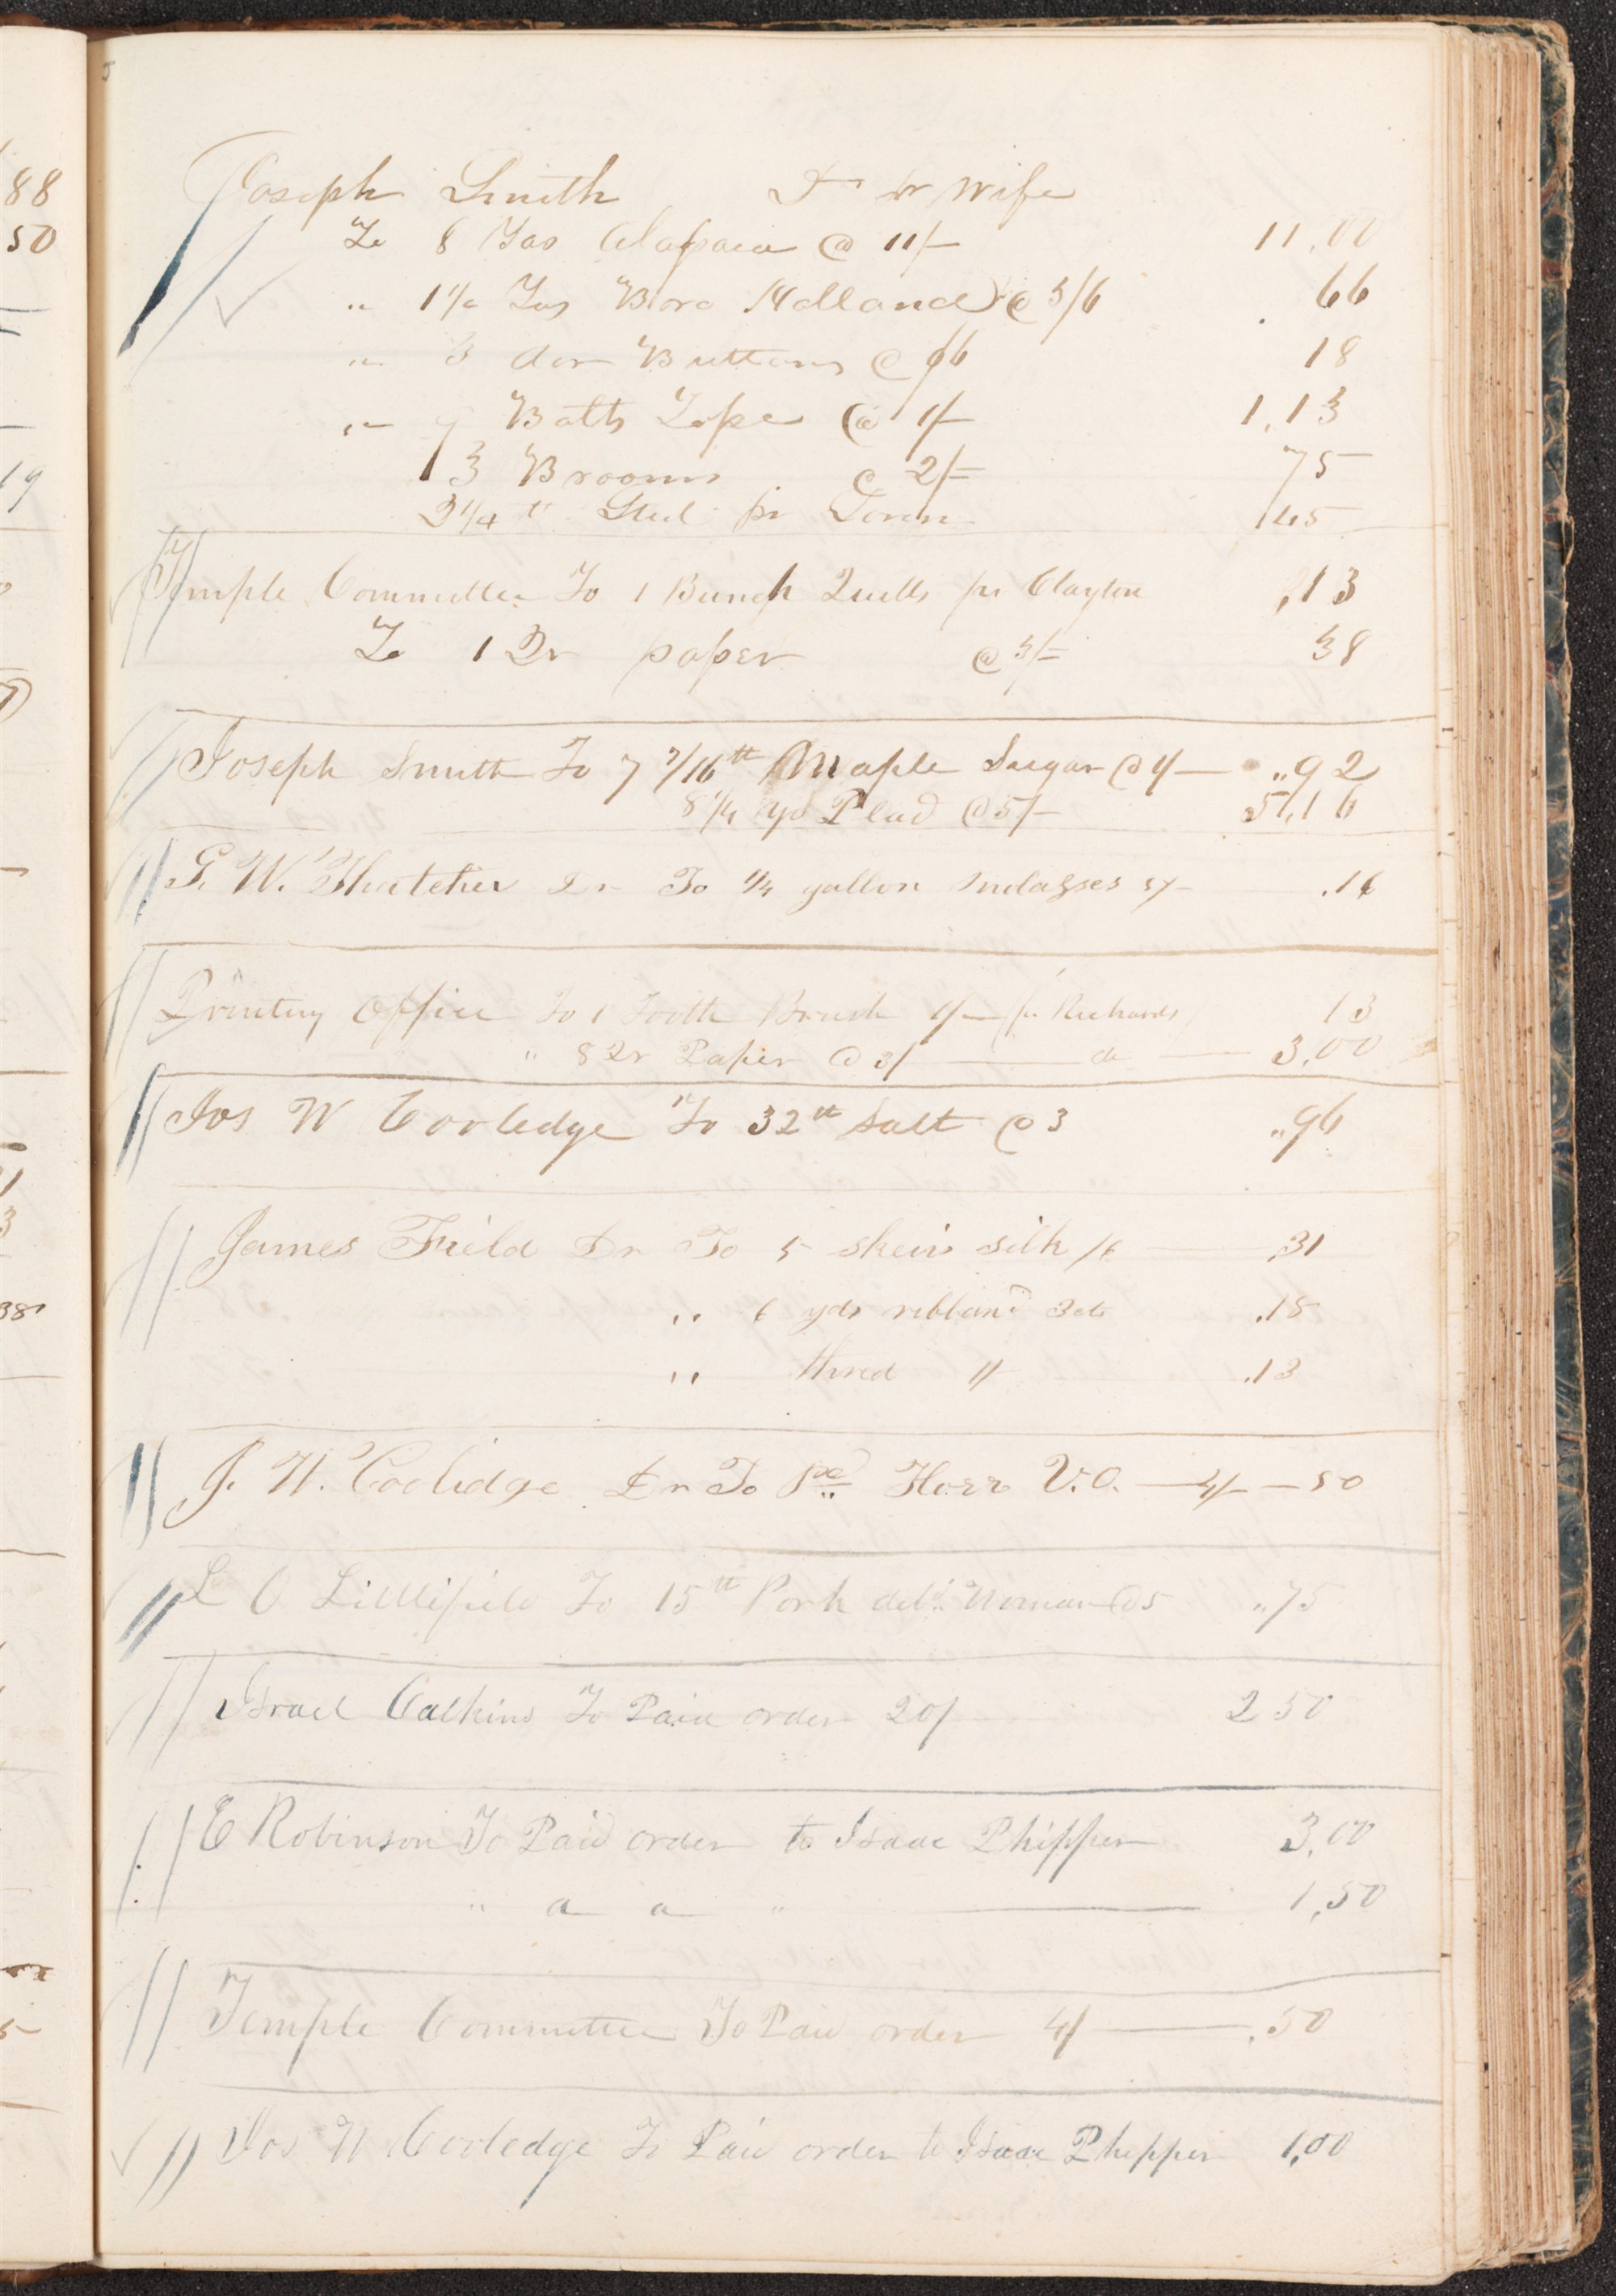 88
50
19
38
5
Joseph Smith Dr pr wife
To 8 Yds Alapaca @ 11/– 11,00
" 1 1/2 Yds Bro Holland @ 3/6 66
" 3 doz Buttons @ /6 18
" 9 Balls Tape @ 1/– 1,13
3 Brooms @ 2/– 75
2 1/4 lb Steel pr 45
Temple Committee To 1 Bunch Quills pr Clayton ,13
To 1 Qr paper @ 3/– 38
Joseph Smith To 7 7/16 lb Maple Sugar @ 1/– " 92
8 1/4 yd Plad @ 5/– 5,16
G. W. Thatcher Dr To 1/4 gallon molasses 5/– .16
Printing Office To 1 Tooth Brush 1/– (pr Richards) 13
" 8 Qr Paper @ 3/ — do — 3,00
Jos W Cooledge To 32 lb Salt @ 3 " 96
James Field Dr To 5 skeins silk /6 — ,31
" 6 yds ribband 3cts .18
" thred 1/ .13
J. W. Coolidge Dr To Pd Hosr V.O. — 4/– — 50
L O Littlefield To 15 lb Pork deld Woman @ 5 " 75
Israel Calkins To Paid order 20/ 2 50
E Robinson To Paid order to Isaac Phippen 3,00
" do do " — 1,50
Temple Committee To Paid order 4/ — .50
Jos W Cooledge To Paid order to Isaac Phippen 1,00